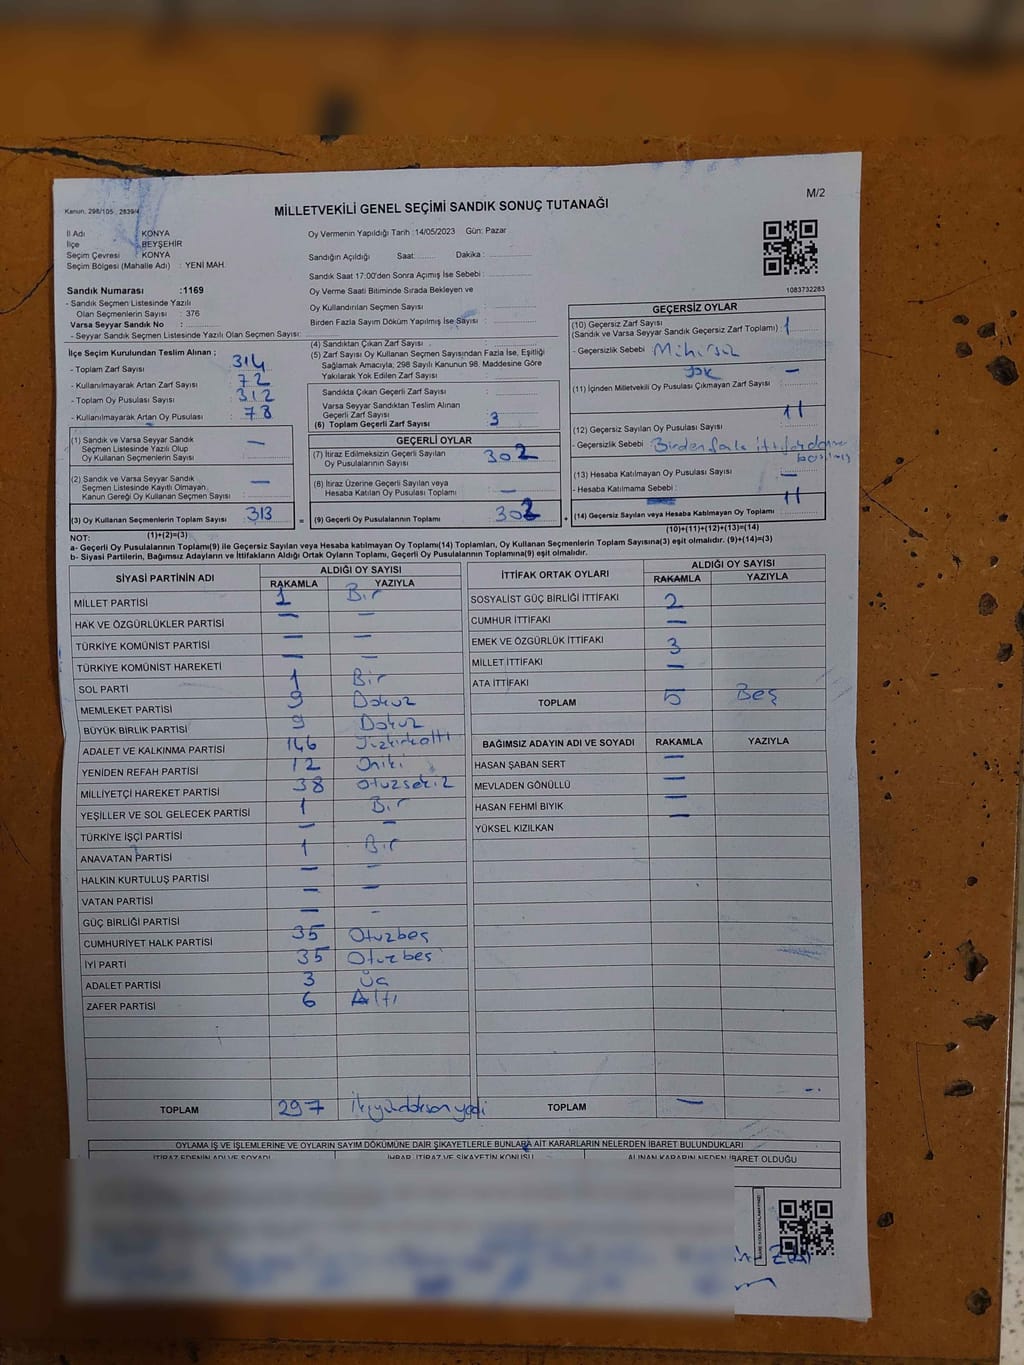 M/2
Kanun. 298/105 2839/4
MİLLETVEKİLİ GENEL SEÇİMİ SANDIK SONUÇ TUTANAĞI
İl Adı KONYA
İlçe BEYŞEHİR
Seçim Çevresi : KONYA
Seçim Bölgesi (Mahalle Adı) : YENİ MAH.
Sandık Numarası :1169
- Sandık Seçmen Listesinde Yazılı
Olan Seçmenlerin Sayısı : 376
Varsa Seyyar Sandık No :
- Seyyar Sandık Seçmen Listesinde Yazılı Olan Seçmen Sayısı:
Oy Vermenin Yapıldığı Tarih :14/05/2023 Gün: Pazar
Sandığın Açıldığı Saat: Dakika :
Sandık Saat 17:00'den Sonra Açımış İse Sebebi :
Oy Verme Saati Bitiminde Sırada Bekleyen ve
Oy Kullandırılan Seçmen Sayısı
Birden Fazla Sayım Döküm Yapılmış İse Sayısı :
1083732283
İlçe Seçim Kurulundan Teslim Alınan ;
- Toplam Zarf Sayısı 314
- Kullanılmayarak Artan Zarf Sayısı 72
- Toplam Oy Pusulası Sayısı 312
- Kullanılmayarak Artan Oy Pusulası 78
(1) Sandık ve Varsa Seyyar Sandık
Seçmen Listesinde Yazılı Olup
Oy Kullanan Seçmenlerin Sayısı —
(2) Sandık ve Varsa Seyyar Sandık
Seçmen Listesinde Kayıtlı Olmayan
Kanun Gereği Oy Kullanan Seçmen Sayısı —
(3) Oy Kullanan Seçmenlerin Toplam Sayısı 313
(1)+(2)=(3)
(4) Sandıktan Çıkan Zarf Sayısı
(5) Zarf Sayısı Oy Kullanan Seçmen Sayısından Fazla İse, Eşitliği
Sağlamak Amacıyla; 298 Sayılı Kanunun 98. Maddesine Göre
Yakılarak Yok Edilen Zarf Sayısı
Sandıkta Çıkan Geçerli Zarf Sayısı
Varsa Seyyar Sandıktan Teslim Alınan
Geçerli Zarf Sayısı
(6) Toplam Geçerli Zarf Sayısı 3
GEÇERLİ OYLAR
(7) İtiraz Edilmeksizin Geçerli Sayılan
Oy Pusulalarının Sayısı 302
(8) İtiraz Üzerine Geçerli Sayılan veya
Hesaba Katılan Oy Pusulası Toplamı —
= (9) Geçerli Oy Pusulalarının Toplamı 302 +
GEÇERSİZ OYLAR
(10) Geçersiz Zarf Sayısı
(Sandık ve Varsa Seyyar Sandık Geçersiz Zarf Toplamı) : 1
- Geçersizlik Sebebi Mühürsüz
(11) İçinden Milletvekili Oy Pusulası Çıkmayan Zarf Sayısı —
(12) Geçersiz Sayılan Oy Pusulası Sayısı 11
- Geçersizlik Sebebi Birden fazla ittifakdan
(13) Hesaba Katılmayan Oy Pusulası Sayısı —
- Hesaba Katılmama Sebebi :
(14) Geçersiz Sayılan veya Hesaba Katılmayan Oy Toplamı 11
(10)+(11)+(12)+(13)=(14)
NOT:
a- Geçerli Oy Pusulalarının Toplamı(9) ile Geçersiz Sayılan veya Hesaba Katılmayan Oy Toplamı(14) Toplamları, Oy Kullanan Seçmenlerin Toplam Sayısına(3) eşit olmalıdır. (9)+(14)=(3)
b- Siyasi Partilerin, Bağımsız Adayların ve İttifakların Aldığı Ortak Oyların Toplamı, Geçerli Oy Pusulalarının Toplamına(9) eşit olmalıdır.
SİYASİ PARTİNİN ADI ALDIĞI OY SAYISI
RAKAMLA YAZIYLA
MİLLET PARTİSİ 1 Bir
HAK VE ÖZGÜRLÜKLER PARTİSİ — —
TÜRKİYE KOMÜNİST PARTİSİ — —
TÜRKİYE KOMÜNİST HAREKETİ — —
SOL PARTİ 1 Bir
MEMLEKET PARTİSİ 9 Dokuz
BÜYÜK BİRLİK PARTİSİ 9 Dokuz
ADALET VE KALKINMA PARTİSİ 146 Yüzkırkaltı
YENİDEN REFAH PARTİSİ 12 Oniki
MİLLİYETÇİ HAREKET PARTİSİ 38 Otuzsekiz
YEŞİLLER VE SOL GELECEK PARTİSİ 1 Bir
TÜRKİYE İŞÇİ PARTİSİ — —
ANAVATAN PARTİSİ 1 Bir
HALKIN KURTULUŞ PARTİSİ — —
VATAN PARTİSİ — —
GÜÇ BİRLİĞİ PARTİSİ — -
CUMHURİYET HALK PARTİSİ 35 Otuzbeş
İYİ PARTİ 35 Otuzbeş
ADALET PARTİSİ 3 Üç
ZAFER PARTİSİ 6 Altı
TOPLAM 297 İkiyüzdoksanyedi
İTTİFAK ORTAK OYLARI ALDIĞI OY SAYISI
RAKAMLA YAZIYLA
SOSYALİST GÜÇ BİRLİĞİ İTTİFAKI 2
CUMHUR İTTİFAKI —
EMEK VE ÖZGÜRLÜK İTTİFAKI 3
MİLLET İTTİFAKI —
ATA İTTİFAKI
TOPLAM 5 Beş
BAĞIMSIZ ADAYIN ADI VE SOYADI RAKAMLA YAZIYLA
HASAN ŞABAN SERT —
MEVLADEN GÖNÜLLÜ —
HASAN FEHMİ BIYIK —
YÜKSEL KIZILKAN —
TOPLAM —
OYLAMA İŞ VE İŞLEMLERİNE VE OYLARIN SAYIM DÖKÜMÜNE DAİR ŞİKAYETLERLE BUNLARA AİT KARARLARIN NELERDEN İBARET BULUNDUKLARI
İTİRAZ EDENİN ADI VE SOYADI İHBAR, İTİRAZ VE ŞİKAYETİN KONUSU ALINAN KARARIN NEDEN İBARET OLDUĞU